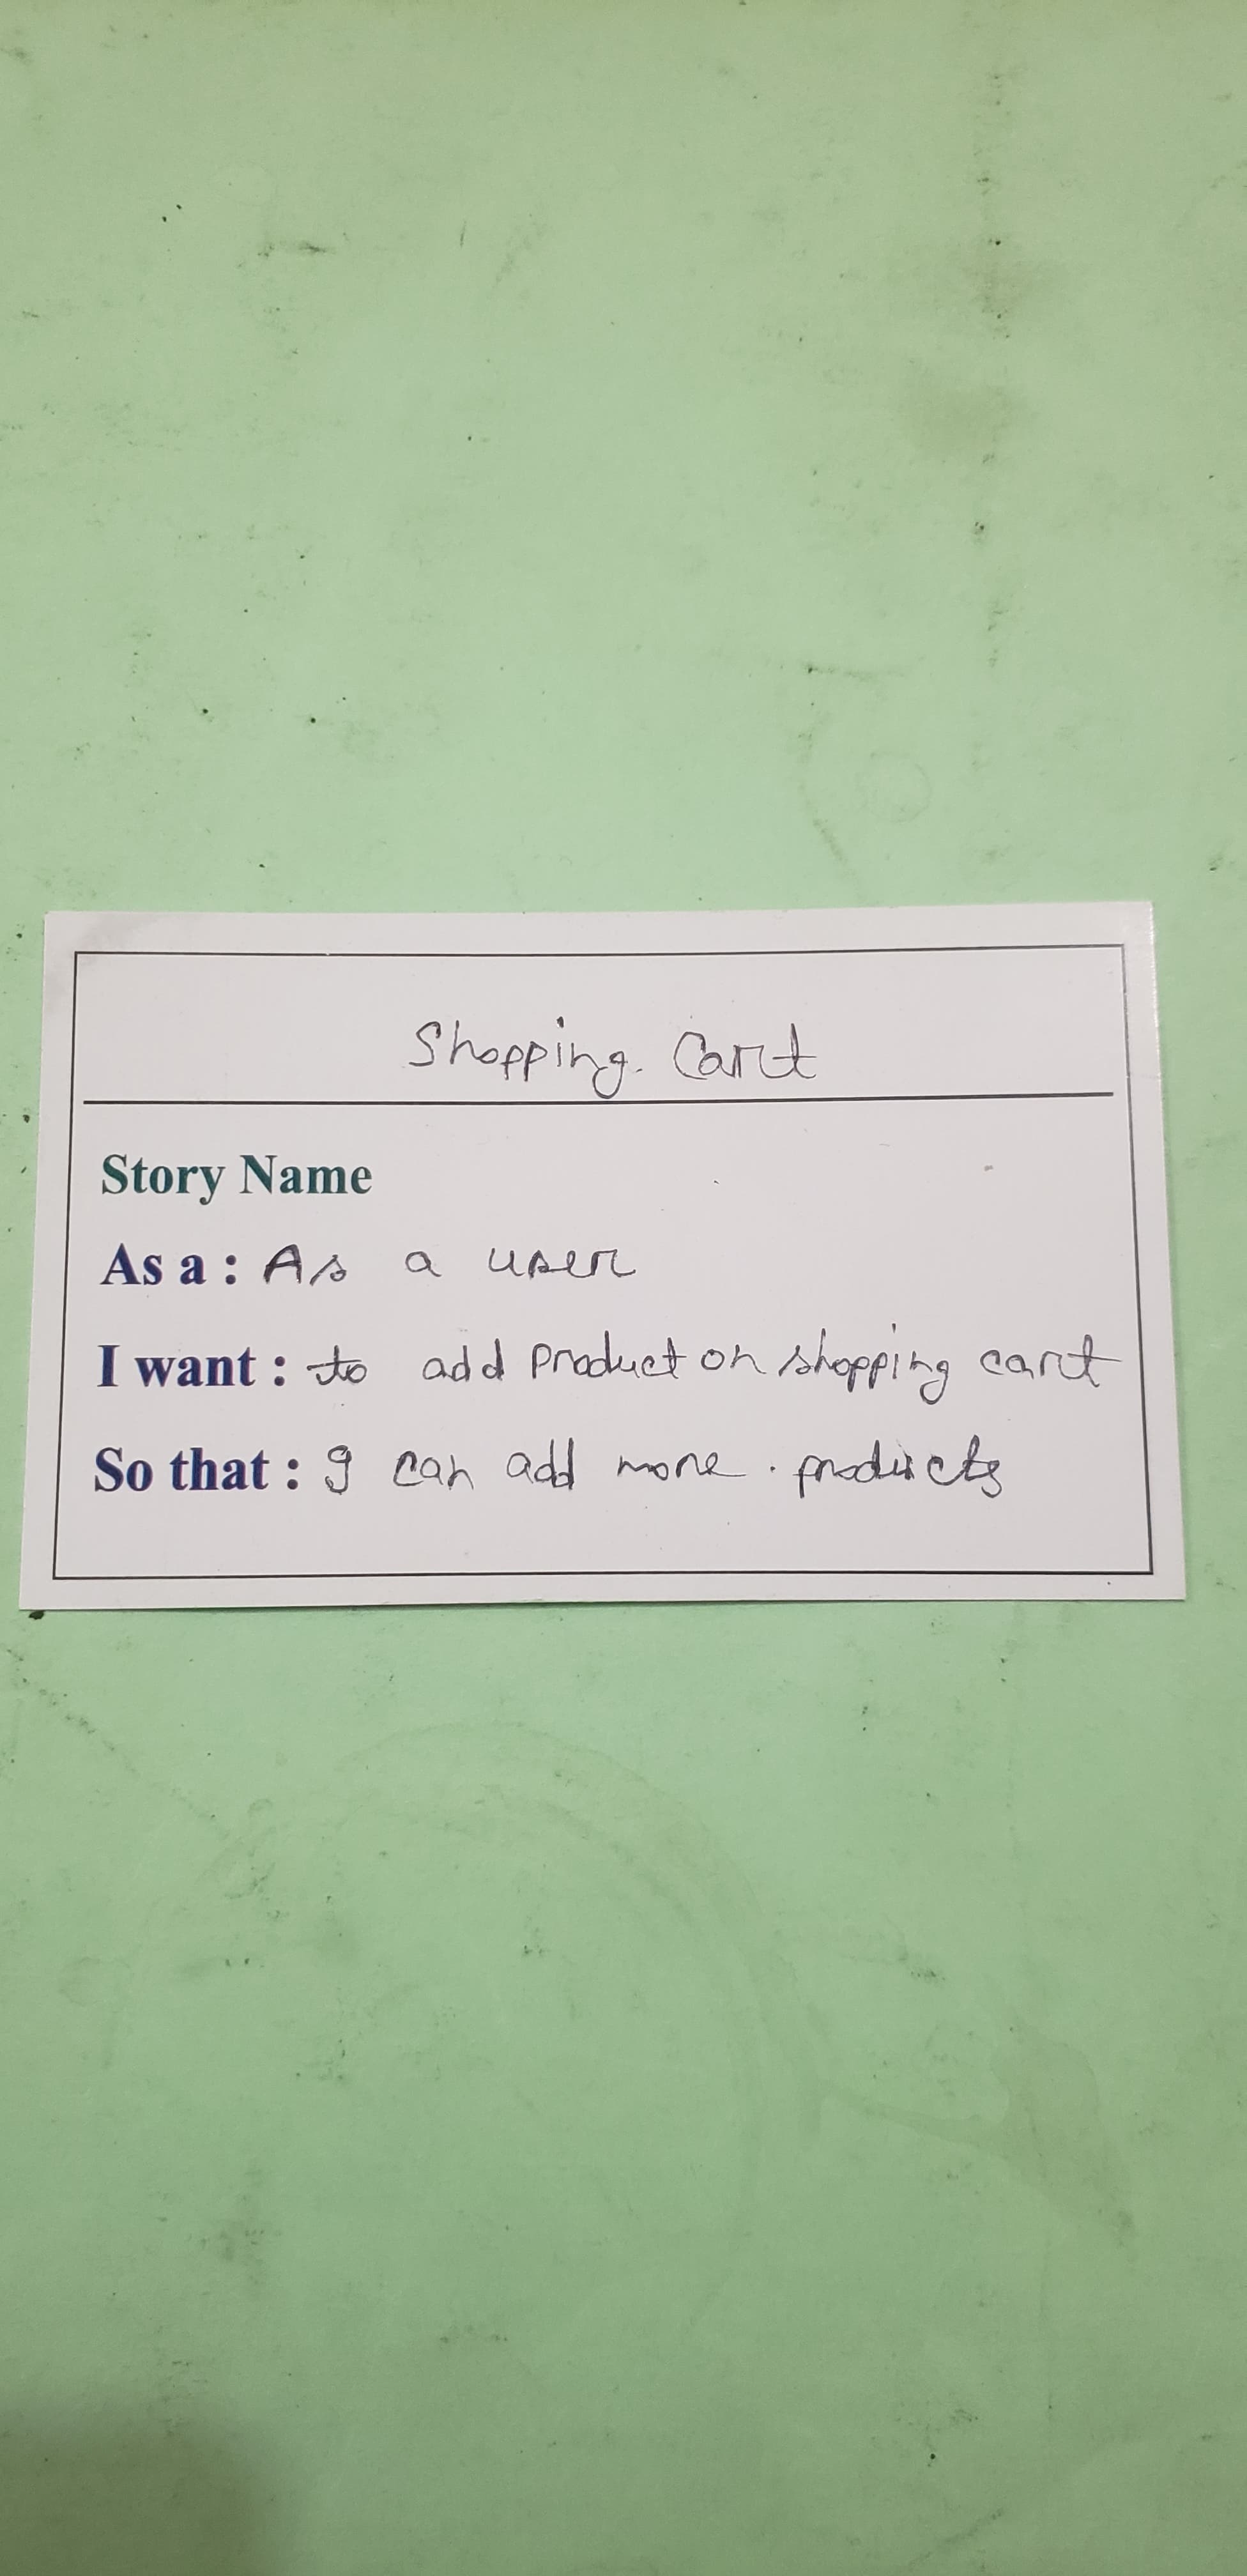 Shopping Cart
Story Name
As a : As a user
I want : to add product on shopping cart
So that : I can add more products